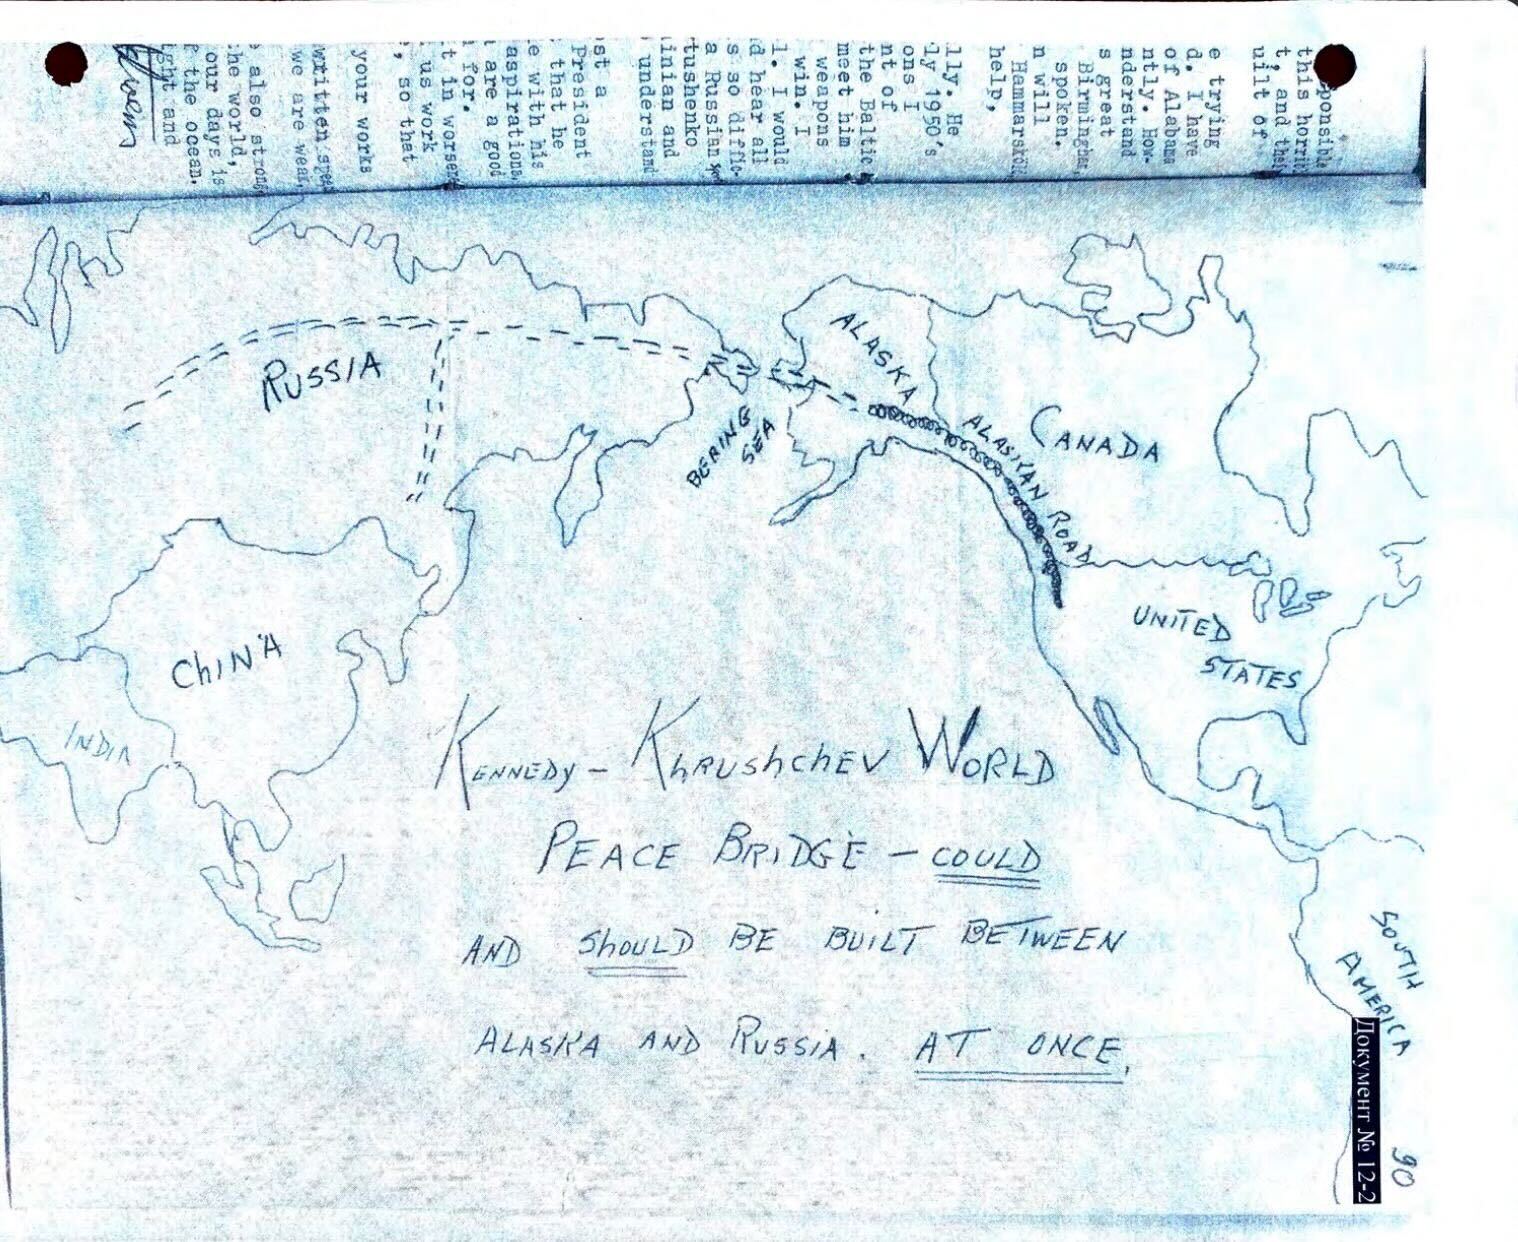 ponsible
this horrib
t, and thei
uilt of
e trying
d. I have
of Alabama
ntly. How-
nderstand
s great
Birmingham,
spoken.
n will
Hammarskjöl
help,
lly. He
ly 1950's
ons I
nt of
the Baltic
meet him
weapons
win. I
l. I would
d hear all
s so diffic-
a Russian
tushenko
inian and
understand
st a
President
that he
e with his
aspirations,
are a good
for.
t in worsen
us work
, so that
your works
written
we are wear
also strong
he world,
our days is
the ocean.
ght and
ALASKA
RUSSIA
BERING
SEA
ALASKAN ROAD
CANADA
UNITED
STATES
CHINA
INDIA
KENNEDY – KHRUSHCHEV WORLD
PEACE BRIDGE – COULD
AND SHOULD BE BUILT BETWEEN
ALASKA AND RUSSIA. AT ONCE.
SOUTH
AMERICA
Документ № 12-2
90